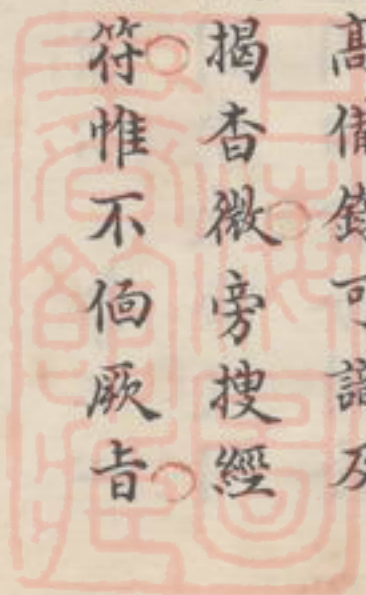 高備錄可諳及
揭杳微旁搜經
符惟不偭厥旨